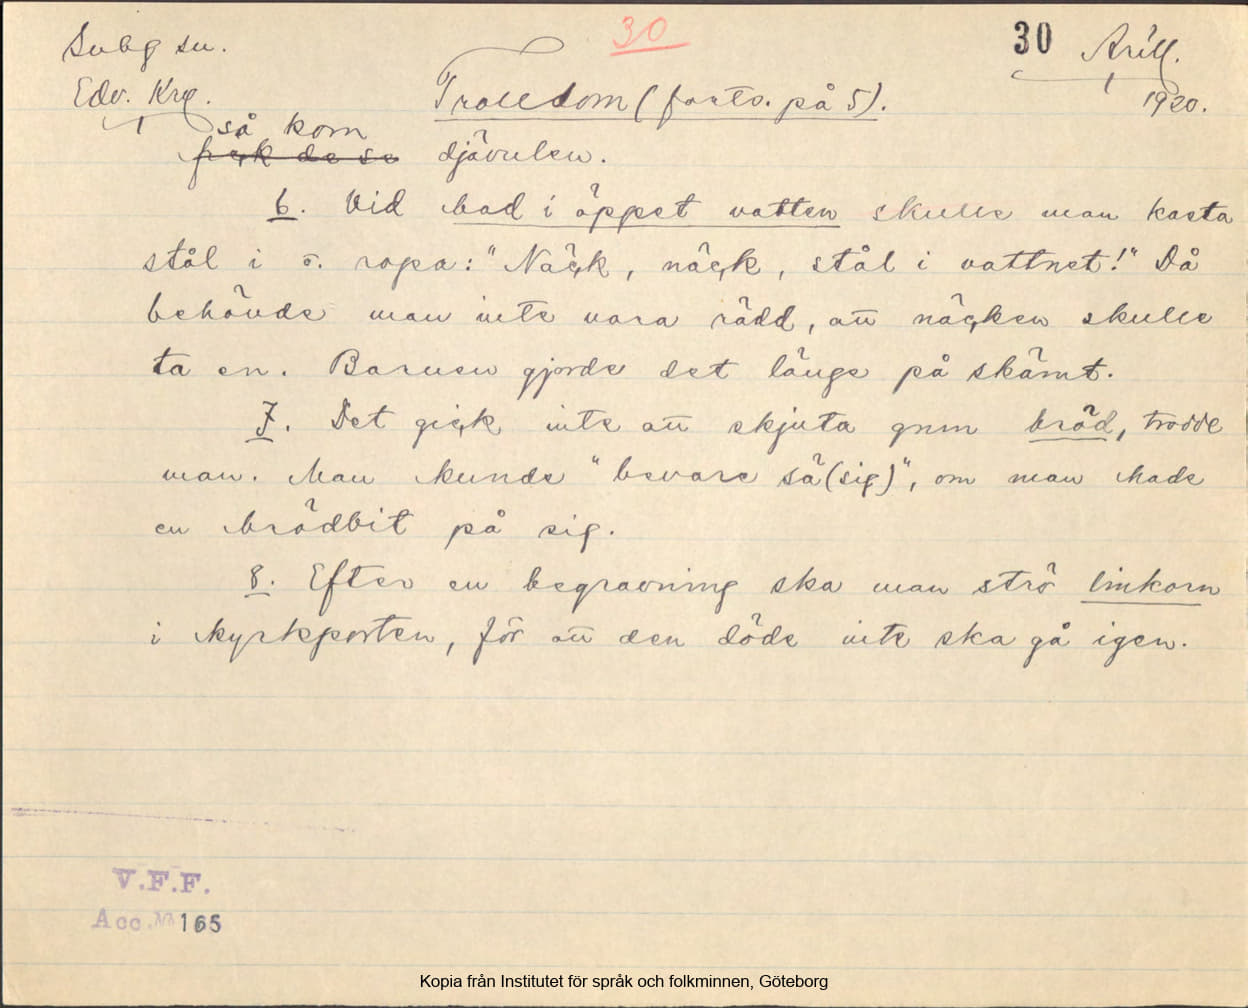 30
30
Subg su.
Arill.
Edv. Krg.
Trolldom (forts. på 5).
1920.
så kom
fick de se djävulen.
6. Vid bad i öppet vatten skulle man kasta
stål i o. ropa: "Näck, näck, stål i vattnet!" Då
behövde man inte vara rädd, att näcken skulle
ta en. Barnen gjorde det länge på skämt.
7. Det gick inte att skjuta gnm bröd, trodde
man. Man kunde "bevare sä (sig)", om man hade
en brödbit på sig.
8. Efter en begravning ska man strö linkorn
i kyrkporten, för att den döde inte ska gå igen.
V.F.F.
Acc. № 165
Kopia från Institutet för språk och folkminnen, Göteborg